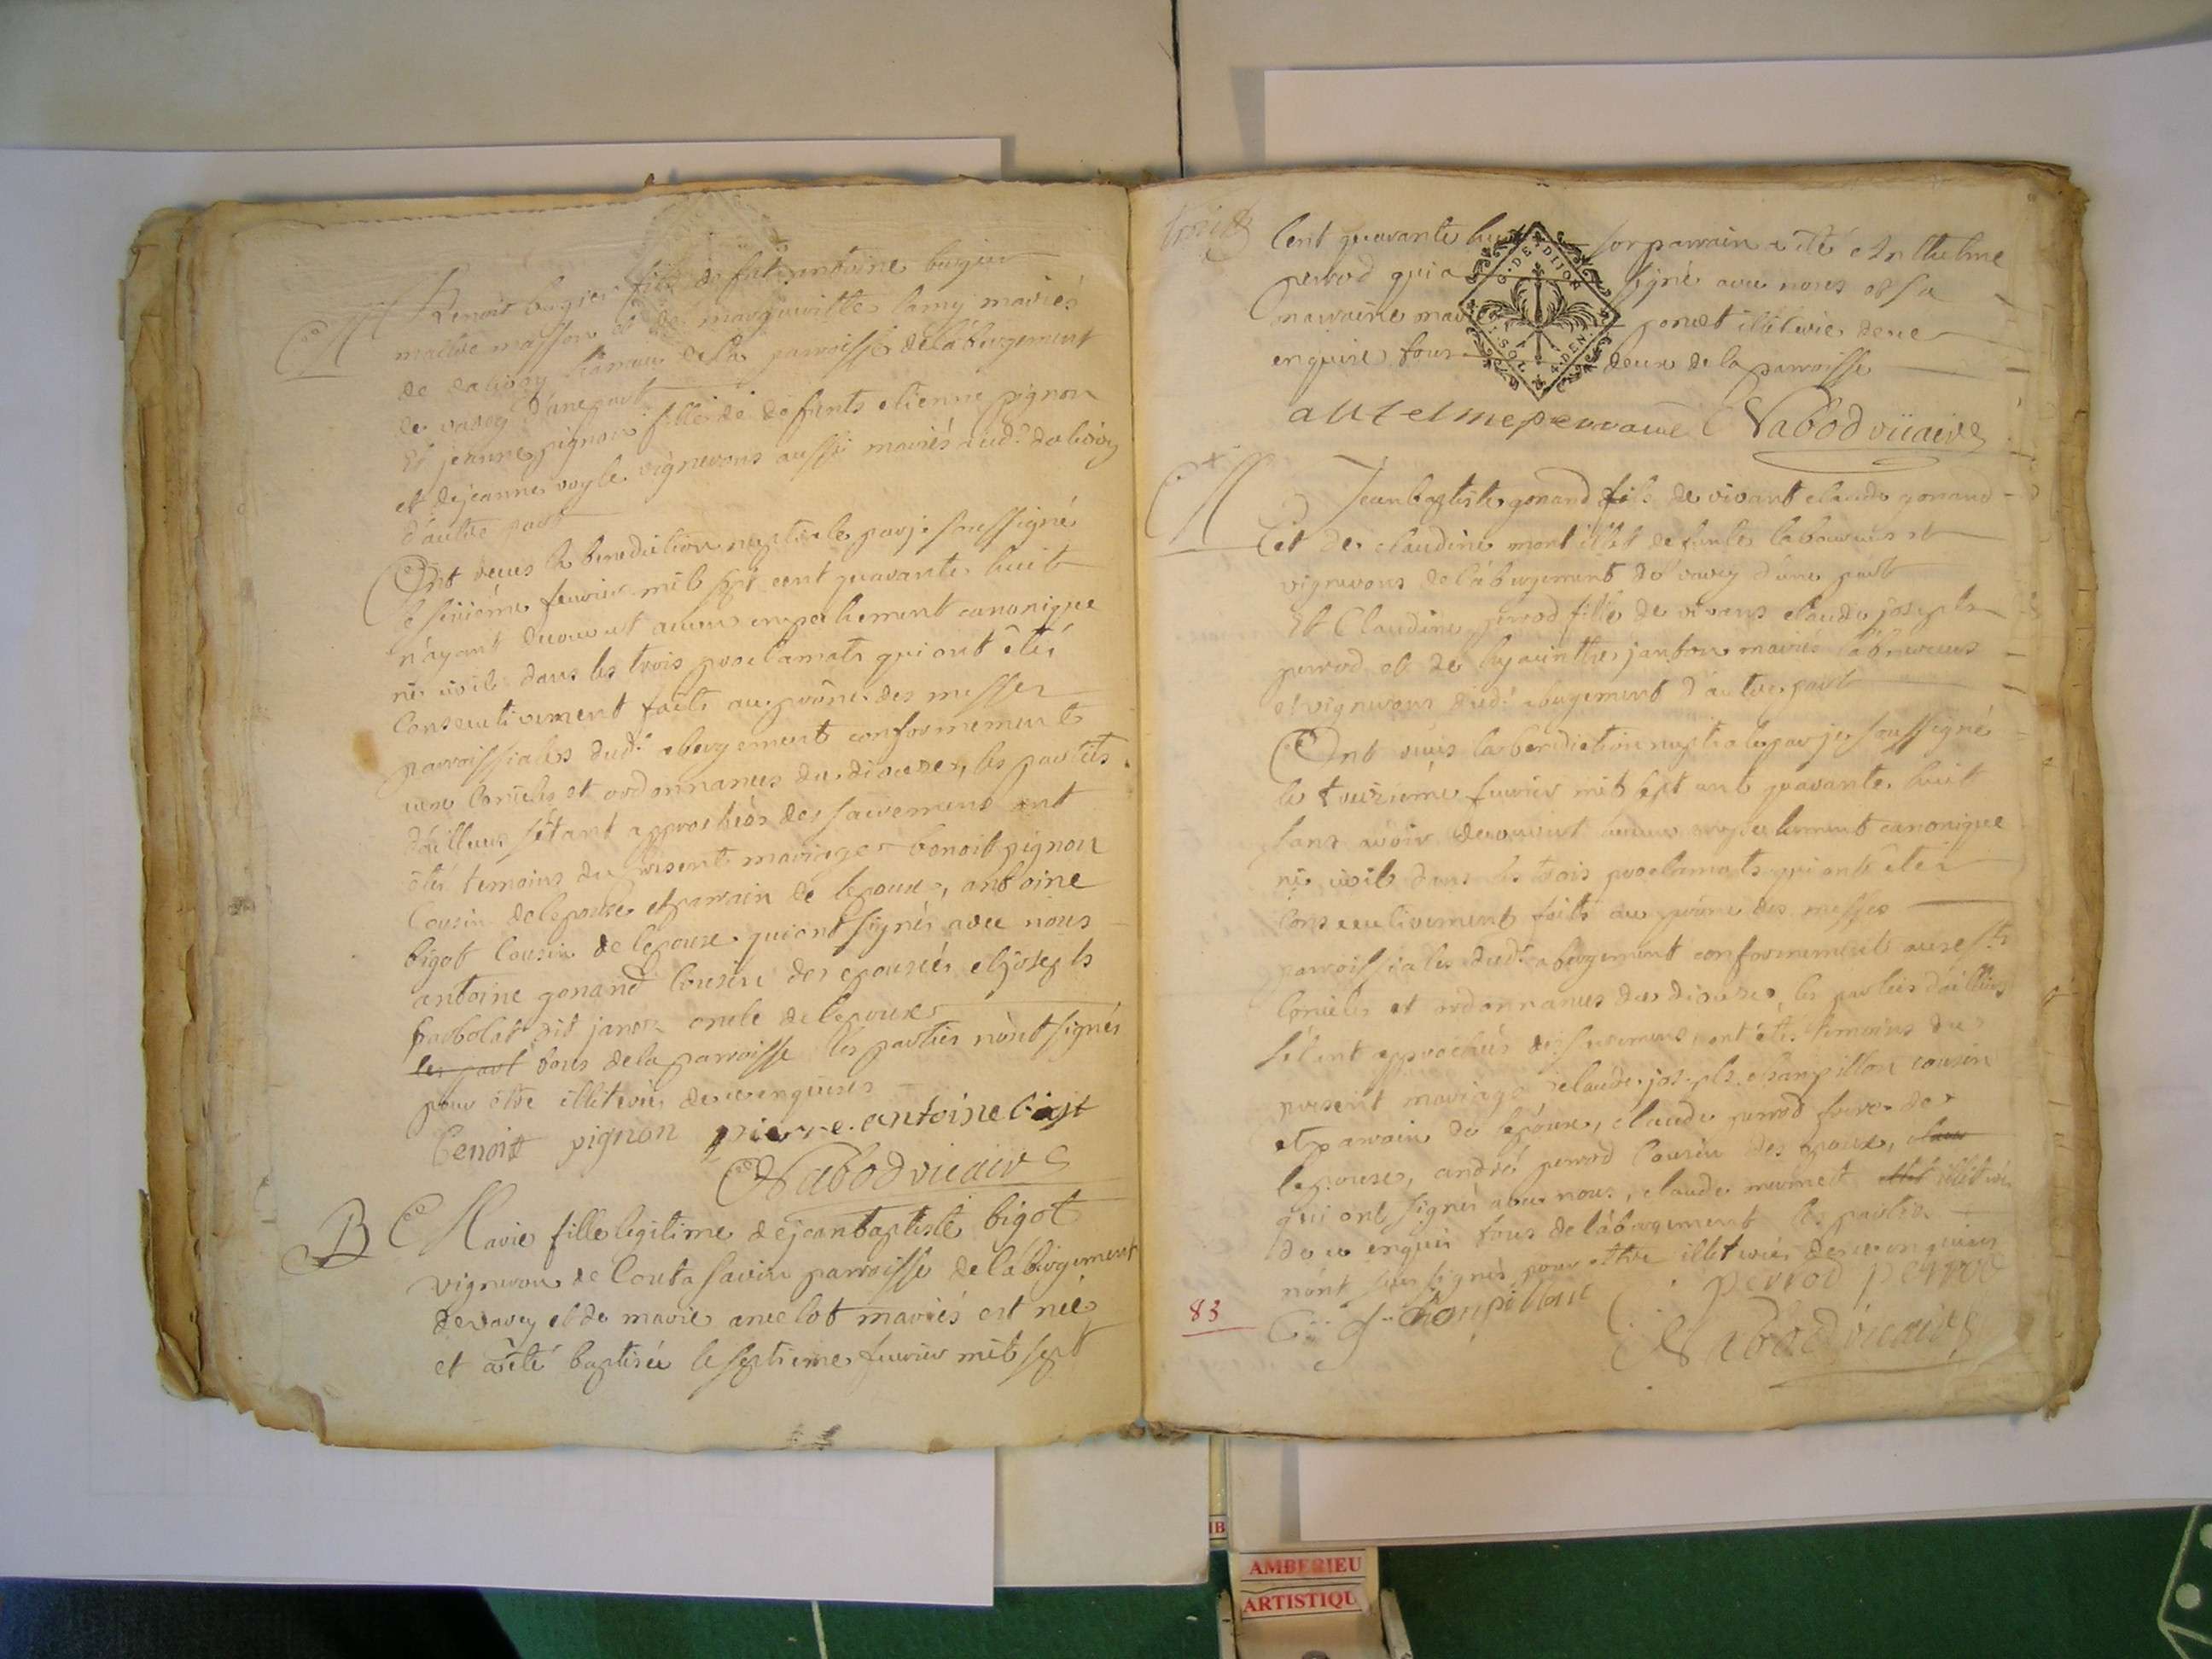 M Benoit bugier fils de fut antoine bugier
maitre masson et de marguerite lamy mariés
de dalivoy hameau de la parroisse de labergement
de varey d'une part
Et jeanne pignon fille de defunts etienne pignon
et de jeanne vignerons aussi mariés dud. dalivoy
d'autre part
Ont reçus la benediction nuptiale par je soussigné
le fevrier mil sept cent quarante huit
n'ayant decouvert aucun empechement canonique
ni civil dans les trois proclamats qui ont étés
consecutivement faits au prône des messes
parroissiales dud. abergement conformement
aux conciles et ordonnances du diocese, les parties
d'ailleurs s'étant approchés des sacremens ont
étés temoins du present mariage benoit pignon
cousin de lepouse et parrain de lepoux, antoine
bigot cousin de lepoux qui ont signés avec nous
antoine gonand cousin des epousés et joseph
dit oncle de lepoux
les part tous de la parroisse les parties n'ont signés
pour être illiterés de ce enquises
Benoit pignon pierre antoine bigot
Nabod vicaire
B Marie fille legitime de jean baptiste bigot
vigneron de parroisse de labergement
de varey et de marie ancelot mariés est née
et a été baptisée le septieme fevrier mil sept
cent quarante huit son parrain a été Anthelme
perrod qui a signé avec nous et sa
marraine marie poncet illiterée de ce
enquise tous deux de la parroisse
G. DE DIJON
SOLS DEN.
antelme Nabod vicaire
M Jean baptiste gonand fils de vivant claude gonand
et de claudine montillet defunte laboureurs et
vignerons de labergement de varey d'une part
Et Claudine perrod fille de vivans claude joseph
perrod et de hyacinthe janton mariés laboureurs
et vignerons dud. abergement d'autre part
Ont reçus la benediction nuptiale par je soussigné
le treizieme fevrier mil sept cent quarante huit
sans avoir decouvert aucun empechement canonique
ni civil dans les trois proclamats qui ont étés
consecutivement faits au prône des messes
parroissiales dud. abergement conformement aux sts
conciles et ordonnances du diocese, les parties d'ailleurs
s'étant approchés des sacremens, ont étés temoins du
present mariage claude joseph champillon cousin
et parrain de lepoux, claude perrod frere de
lepouse, andré perrod cousin des epoux,
qui ont signés avec nous, claude illiteré
de ce enquis tous de labergement les parties
n'ont signés pour etre illiterés de ce enquises
C. J. Champillon C. perrod perrod
Nabod vicaire
83
AMBERIEU
ARTISTIQU